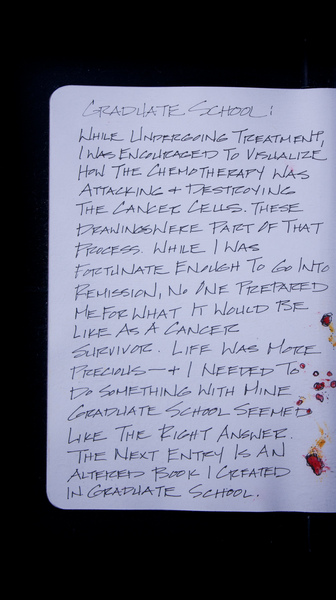 GRADUATE SCHOOL:
WHILE UNDERGOING TREATMENT,
I WAS ENCOURAGED TO VISUALIZE
HOW THE CHEMOTHERAPY WAS
ATTACKING + DESTROYING
THE CANCER CELLS. THESE
DRAWINGS WERE PART OF THAT
PROCESS. WHILE I WAS
FORTUNATE ENOUGH TO GO INTO
REMISSION, NO ONE PREPARED
ME FOR WHAT IT WOULD BE
LIKE AS A CANCER
SURVIVOR. LIFE WAS MORE
PRECIOUS — + I NEEDED TO
DO SOMETHING WITH MINE
GRADUATE SCHOOL SEEMED
LIKE THE RIGHT ANSWER.
THE NEXT ENTRY IS AN
ALTERED BOOK I CREATED
IN GRADUATE SCHOOL.